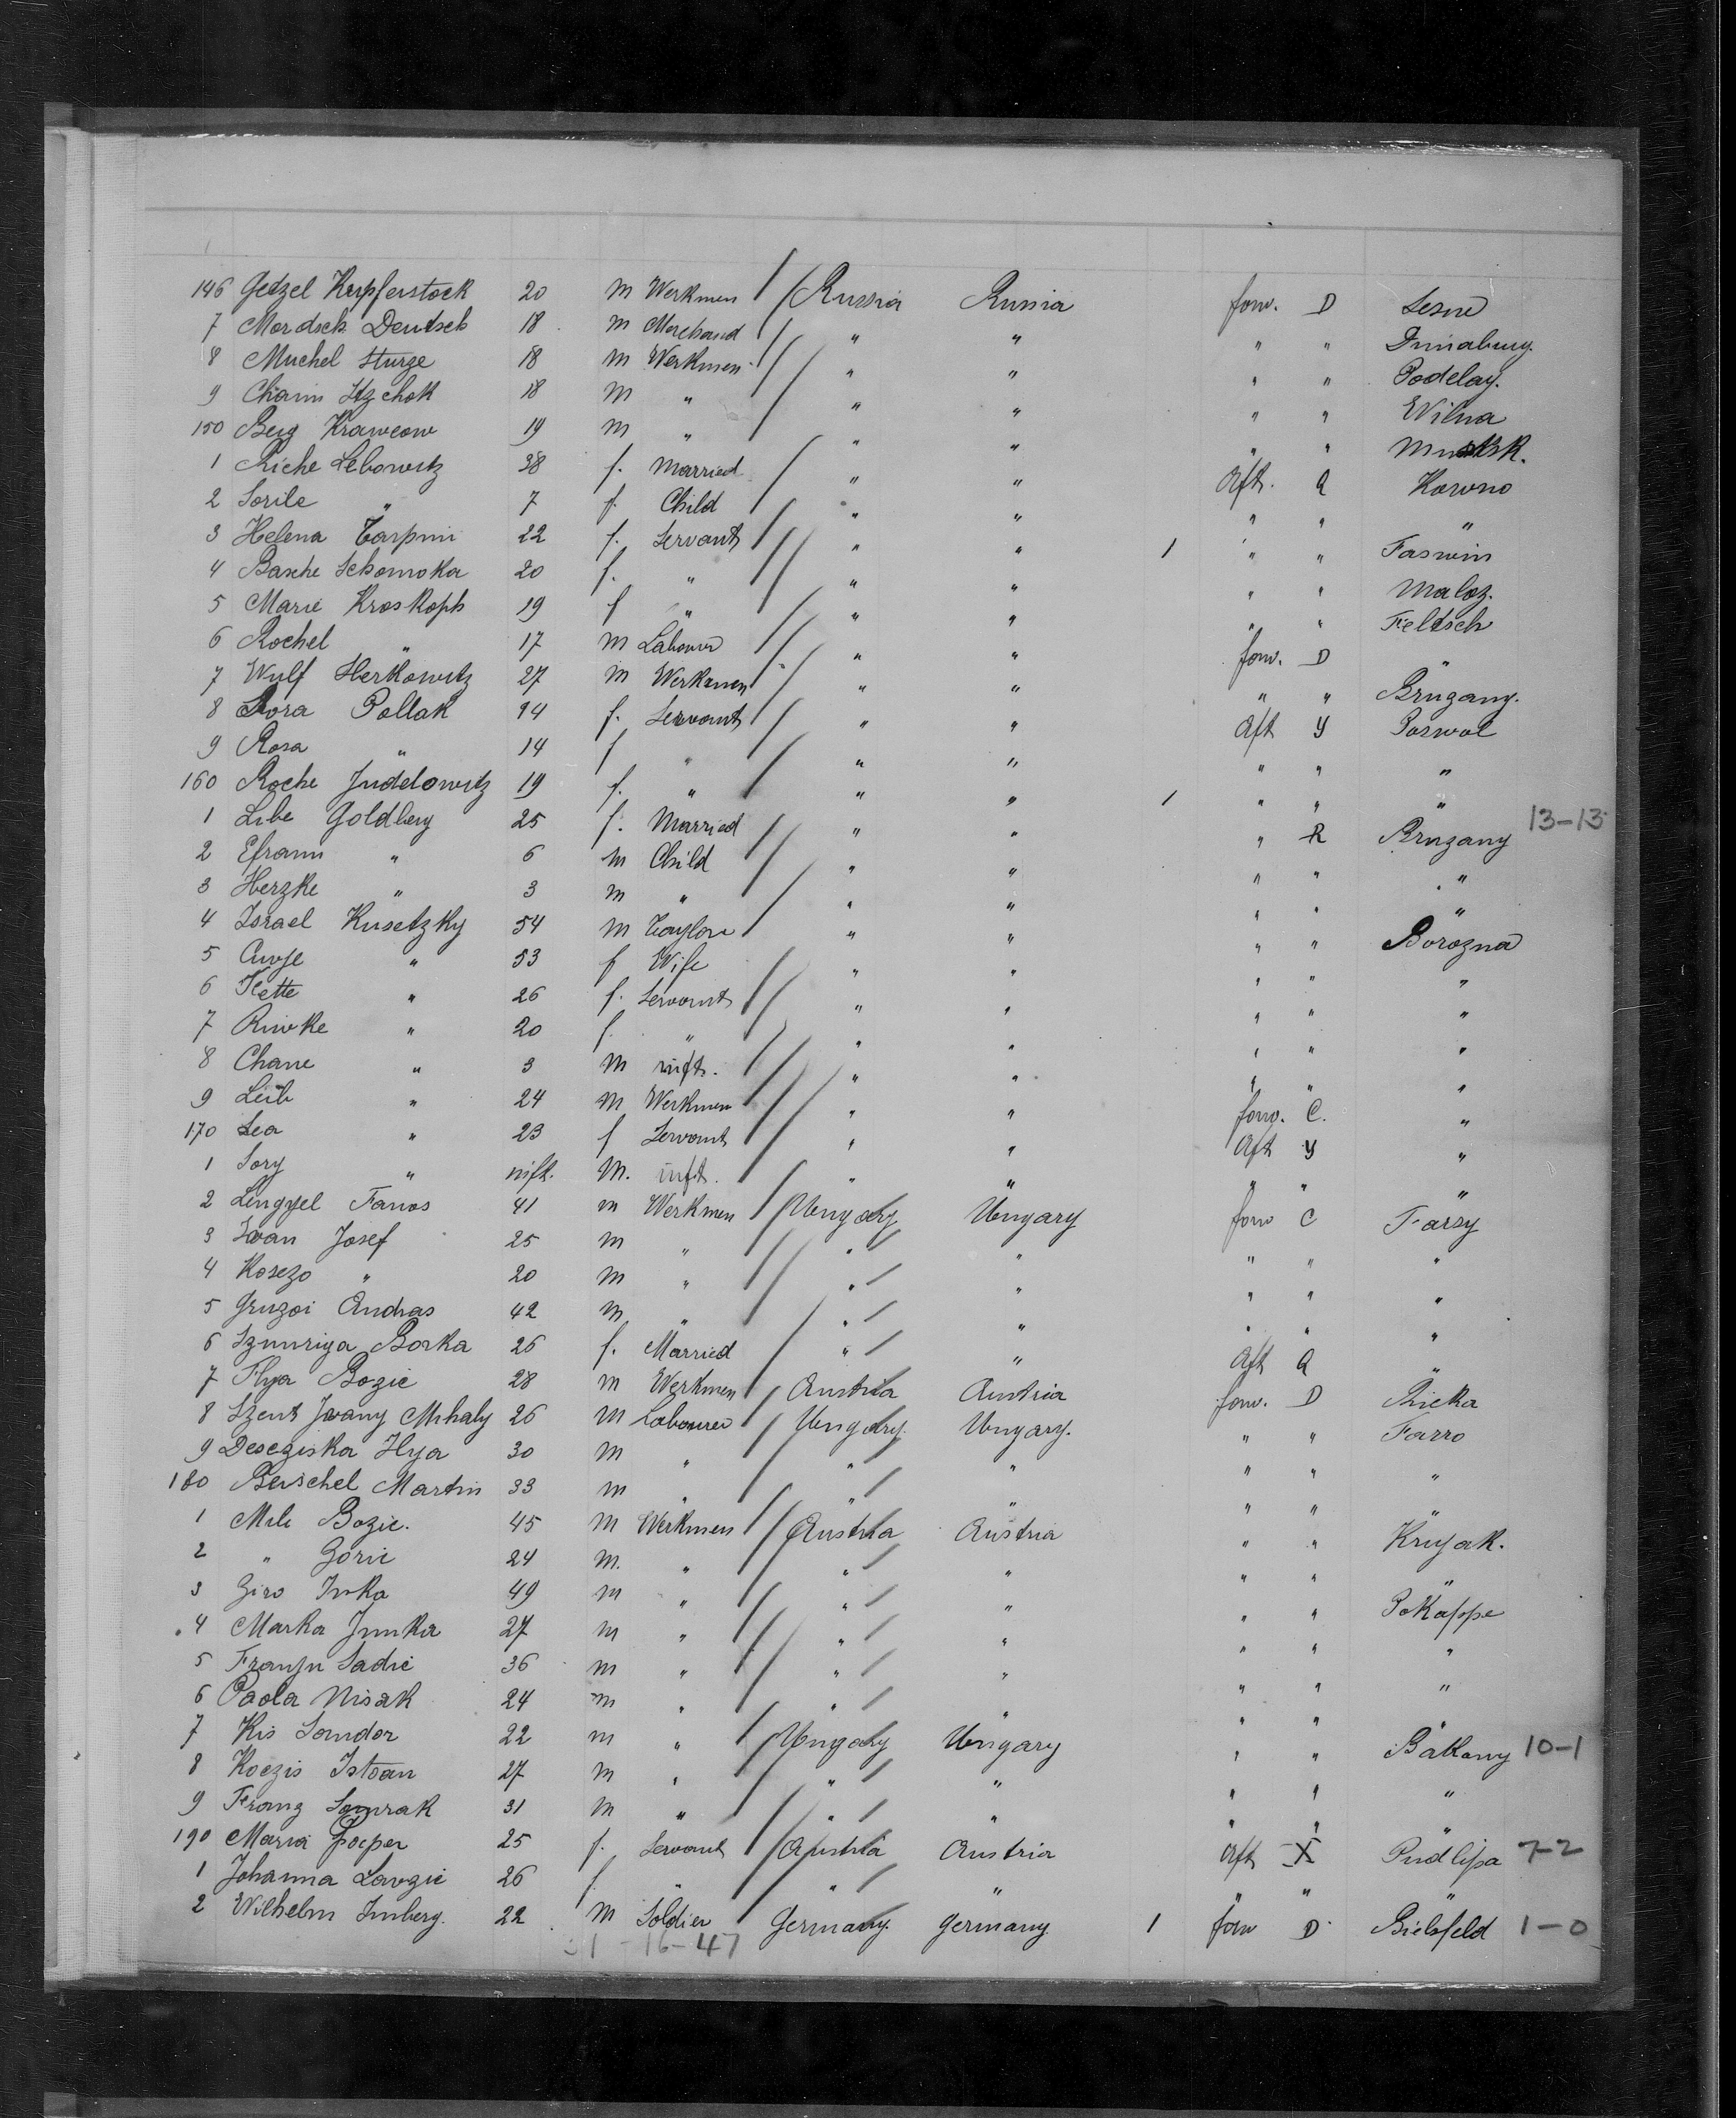 146 Getzel Kupferstock 20 m Werkmen Russia Russia forw. D Lesne
7 Mordsch Deutsch 18 m " " " " Dünaburg.
8 Muchel Sturze 18 m Werkmen " " " " Podelay.
9 Chaim Itzchok 18 m " " " " " Wilna
150 Berg Krawcow 19 m " " " " "
1 Riche Lebowitz 38 f. Married " " Aft. Q Kowno
2 Sorile " 7 f. Child " " " " "
3 Helena Tarpini 22 f. Servant " " 1 " " Faswin
4 Basche Schomoka 20 f. " " " " " Maloz.
5 Marie Kroskoph 19 f " " " " " Feltsch
6 Rochel " 17 m Labourer " " forw. D "
7 Wulf Herkowitz 27 m Werkmen " " " " Brugany.
8 Pollak f. Servant " " Aft Y Poswol
9 Rosa " 14 f " " " " " "
160 Roche Judelowitz 19 f. " " " 1 " " "
1 Libe Goldberg 25 f. Married " " " R Brugany 13-13
2 Efraim " 6 m Child " " " " "
3 Herzke " 3 m " " " " " "
4 Israel Kusetzky 54 m Taylor " " " " Borozna
5 " 53 f Wife " " " " "
6 " 26 f. Servant " " " " "
7 Riwke " 20 f. " " " " " "
8 Chane " 3 m inft. " " " " "
9 Leib " 24 m Werkmen " " forw. C. "
170 Lea " 23 f Servant " " Aft Y "
1 Sory " inft. M. inft. " " " " "
2 Lengyel Fanos 41 m Werkmen Ungary Ungary forw C Farsy
3 Ivan Josef 25 m " " " " " "
4 Kosezo " 20 m " " " " " "
5 Gruzoi Andras 42 m " " " " " "
6 Szmuriga Borka 26 f. Married " " Aft Q "
7 Ilya Bozic 28 m Werkmen Austria Austria forw. D Rieka
8 Szent Jvany Mihaly 26 m Labourer Ungary. Ungary. " " Farro
9 Desegiska Ilya 30 m " " " " " "
180 Berschel Martin 33 m " " " " " "
1 Mile Bozic. 45 m Werkmen Austria Austria " " Krujak.
2 " Goric 24 m. " " " " " "
3 Giro Inka 49 m " " " " " Pokappe
4 Marka Junka 27 m " " " " " "
5 Franjn Sadic 36 m " " " " " "
6 Paola Nisak 24 m " " " " " "
7 Kis Sandor 22 m " Ungary Ungary " " Bakony 10-1
8 Koczis Istvan 27 m " " " " " "
9 Franz 31 m " " " " " "
190 Maria 25 f. Servant Austria Austria Aft X Pudlipa 7-2
1 Johanna Lavzic 26 f. " " " " " "
2 Wilhelm Imberg. 22 m Soldier Germany. Germany. 1 forw D Bielefeld 1-0
31-16-47